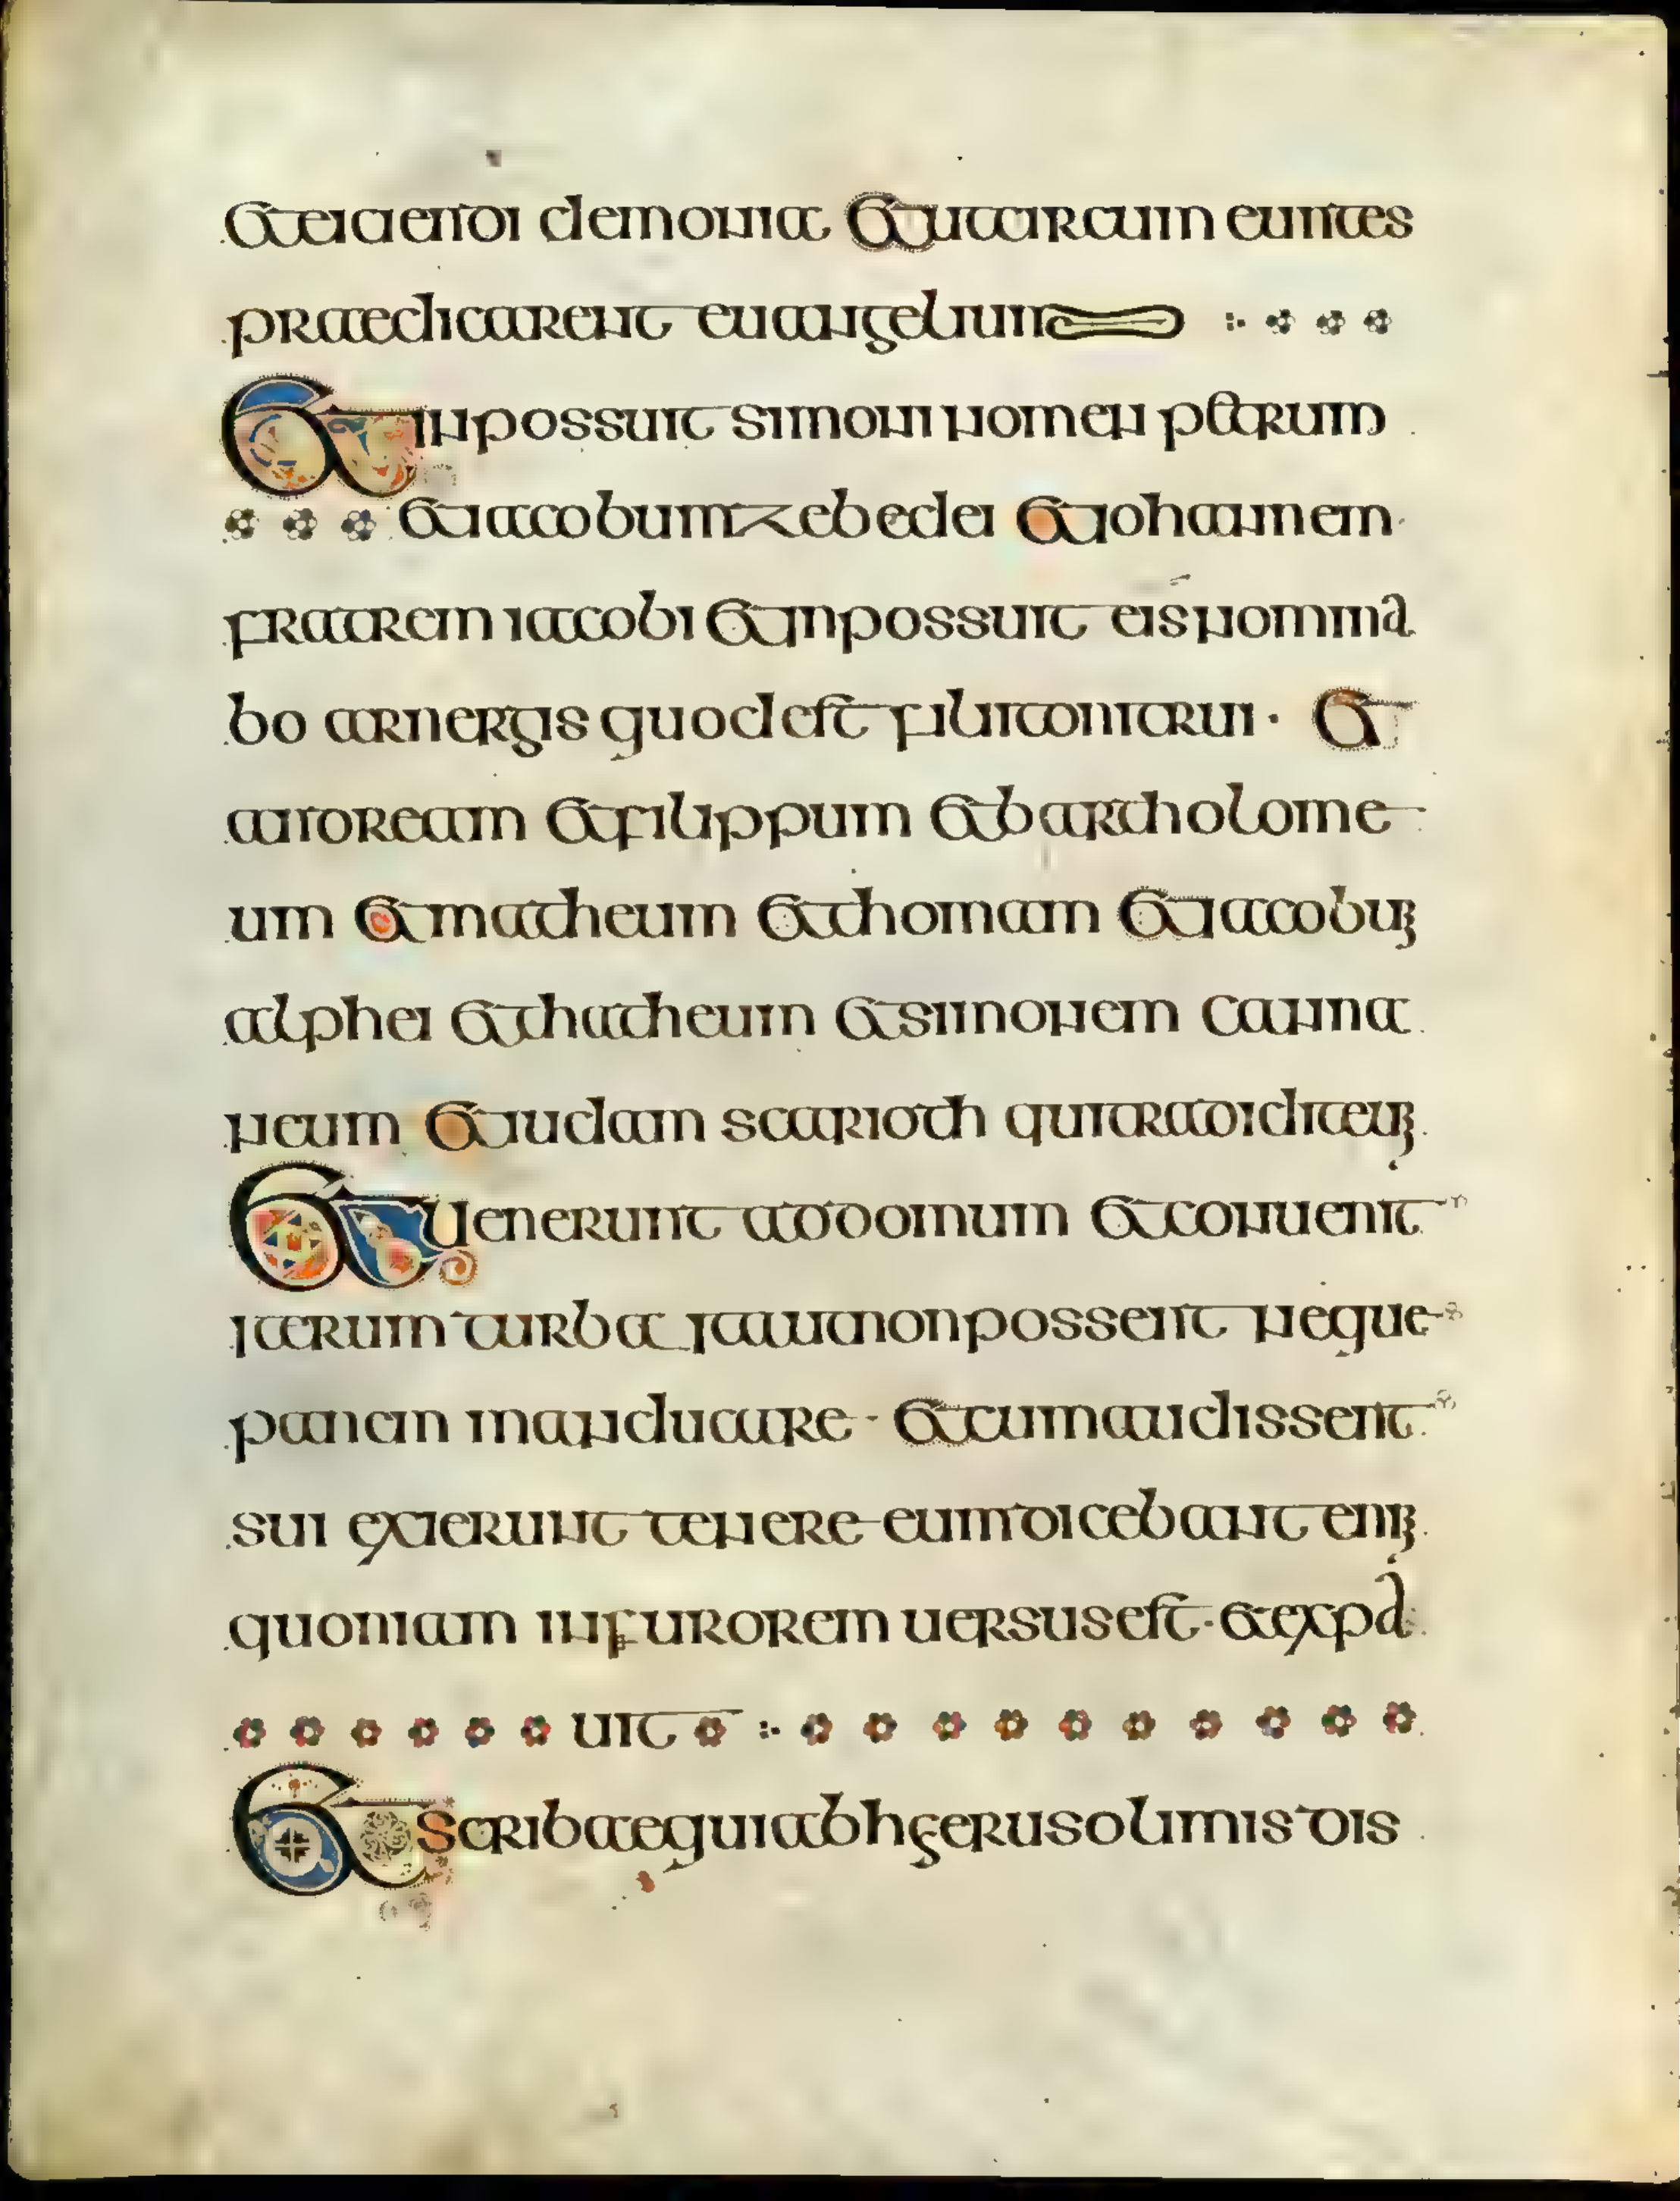 et eiciendi demonia et ut circum euntes
praedicarent euangelium
Et inpossuit simoni nomen petrum
et iacobum zebedei et iohannem
fratrem iacobi et inpossuit eis nomina
bo arnergis quod est filii tonitrui · et
andream et filippum et bartholome
um et matheum et thomam et iacobuꝫ
alphei et thatheum et simonem canna
neum et iudam scarioth qui tradidit euꝫ
Et uenerunt ad domum et conuenit
iterum turba ita ut non possent neque
panem manducare · et cum audissent
sui exierunt tenere eum dicebant eniꝫ
quoniam in furorem uersus est · et expa
uit
Et scribae qui ab hgerusolimis dis